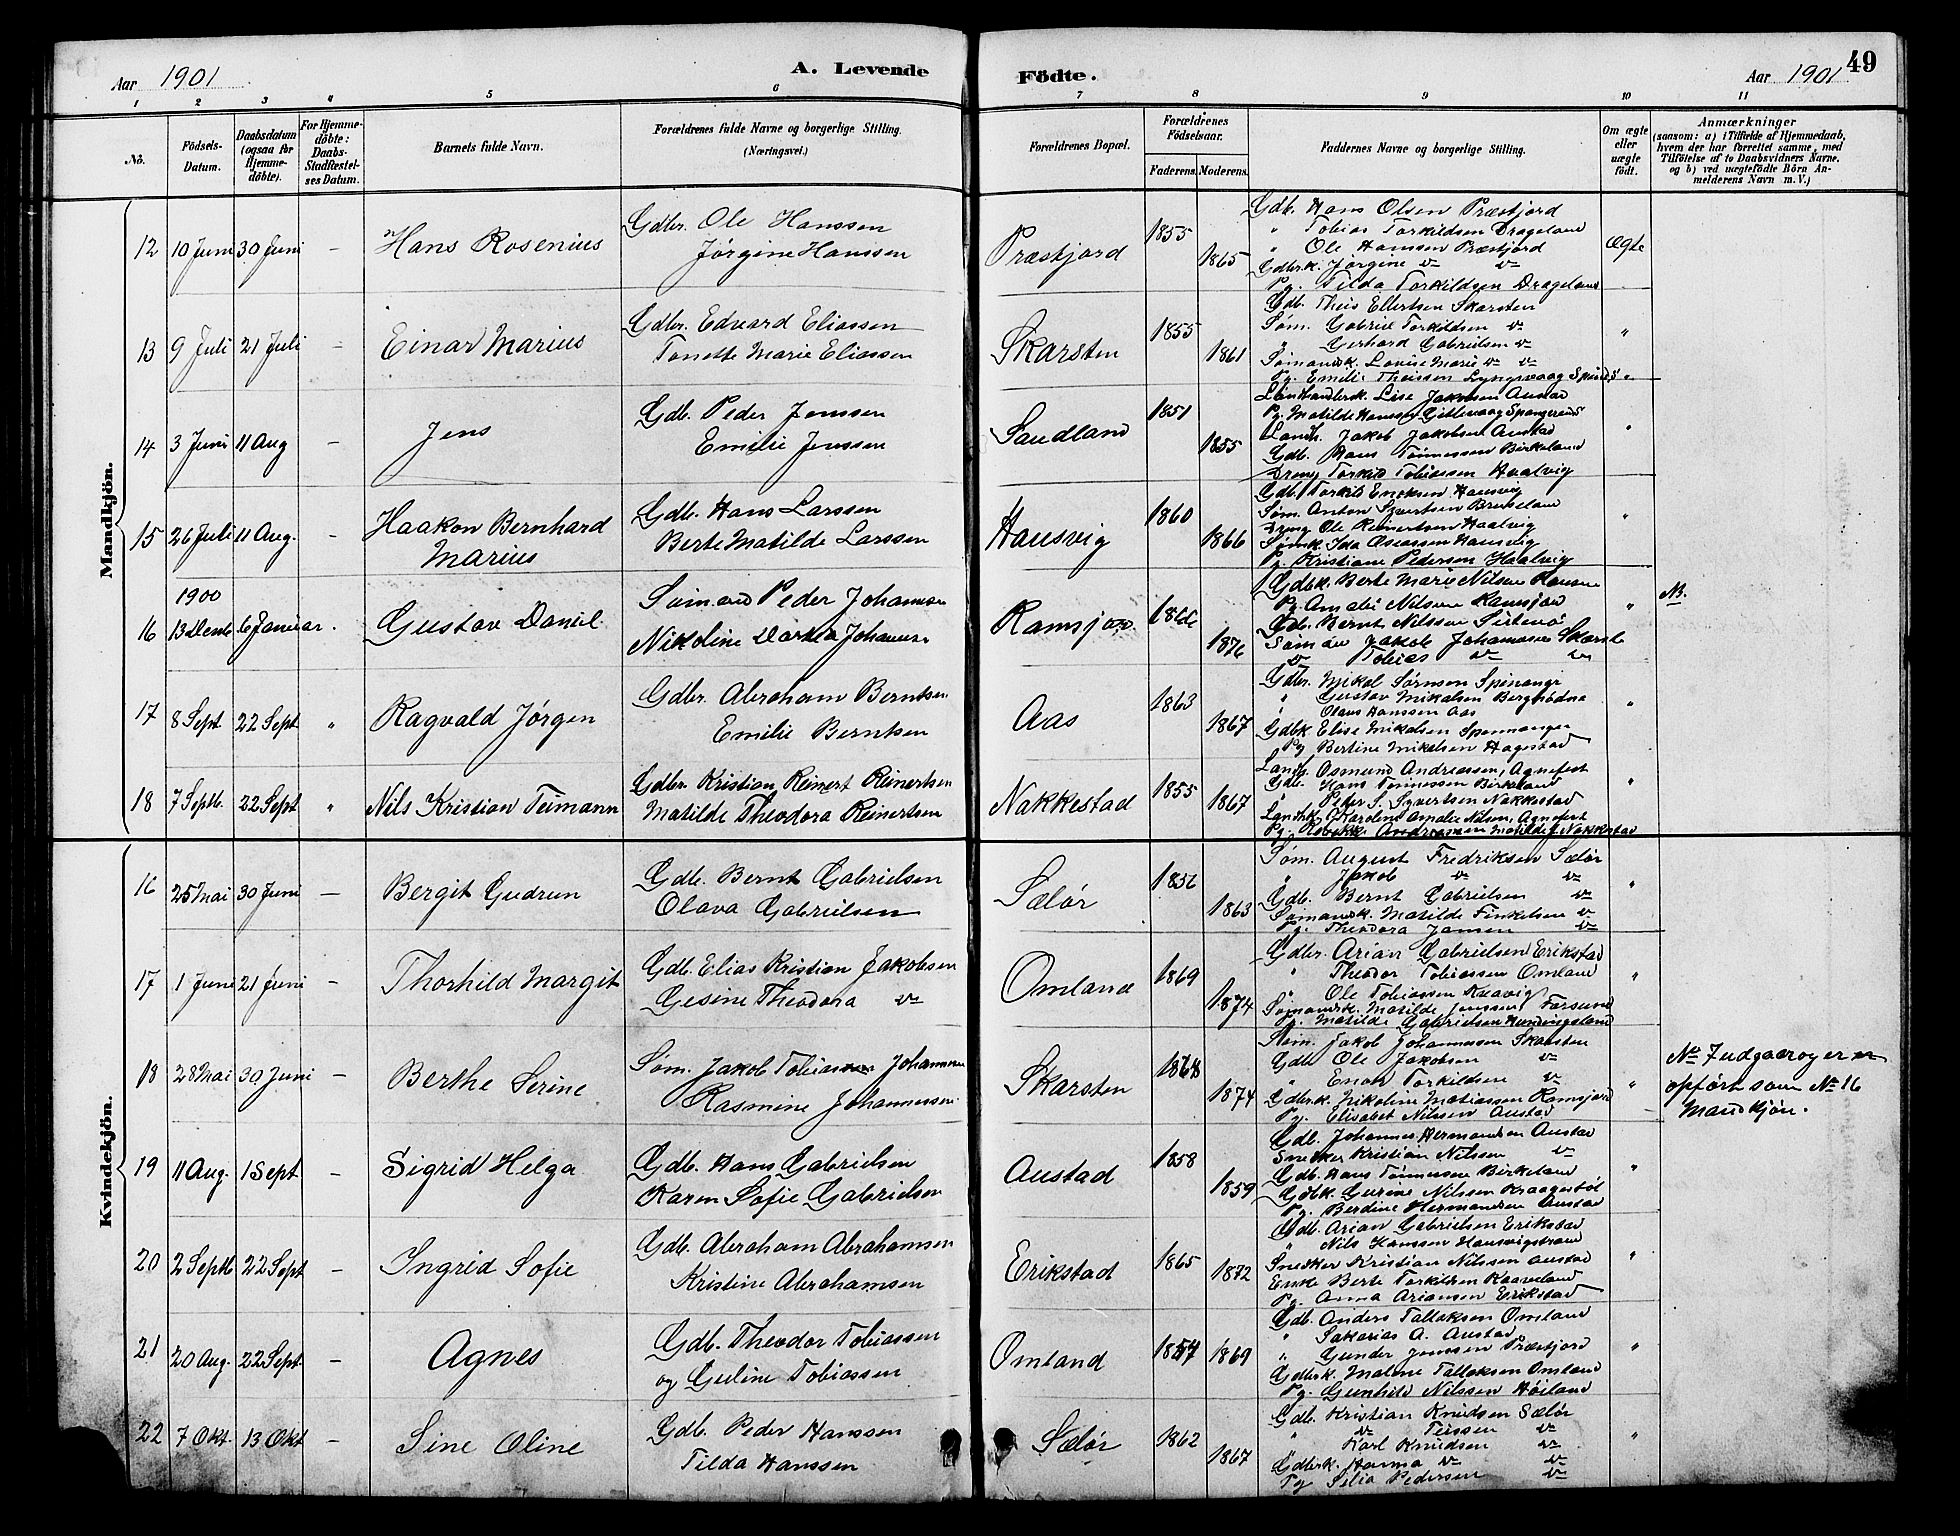 Aar 1901 A. Levende
Födte. Aar 1901 49
1 2 3 4 5 6 7 8 9 10 11
Nö.
Födsels-Datum.
Daabsdatum (ogsaa for Hjemme-döbte).
For Hjemme-döbte: Daabs-Stadfæstel-ses Datum.
Barnets fulde Navn.
Forældrenes fulde Navne og borgerlige Stilling.
(Næringsvei.)
Forældrenes Bopæl.
Forældrenes Födselsaar.
Faderens. Moderens.
Faddernes Navne og borgerlige Stilling.
Om ægte eller uægte födt.
Anmærkninger
(saasom: a) i Tilfælde af Hjemmedaab,
hvem der har forrettet samme, med
Tilföielse af to Daabsvidners Navne.
og b) ved uægtefödte Börn An-
melderens Navn m. V.)
Mandkjön.
12 10 Juni 30 Juni – Hans Rosenius
Gdbr. Ole Hanssen
Jørgine Hanssen
Præstjord 1855 1865
Gdb. Hans Olsen Præstjord
" Tobias Torkildsen Drageland
" Ole Hanssen Præstjord
Gdbrk. Jørgine
Pg. Tilda Torkildsen Drageland
Ægte
13 9 Juli 21 Juli – Einar Marius
Gdbr. Edvard Eliassen
Tonette Marie Eliassen
Skarsten 1855 1861
Gdb. Theis Ellertsen Skarsten
Søm. Gabriel Torkildsen
" Gerhard Gabrielsen
Sømandsk. Louise Marie
Pg. Emilie Theissen Lyngsvaag
"
14 3 Juni 11 Aug – Jens
Gdb. Peder Jenssen
Emilie Jenssen
Sandland 1851 1855
Lise Jakobsen Austad
Pg. Matilde Hansen
Landh. Jakob Jakobsen Austad
Gdb. Hans Tönnessen Birkeland
Dreng Torkild Tobiassen Haalvig
"
15 26 Juli 11 Aug. – Haakon Bernhard
Marius
Gdb. Hans Larssen
Berte Matilde Larssen
Hausvig 1860 1866
Gdb. Torkild Eriksen Hausvig
Søm. Anton Syvertsen
Dreng Ole Reinertsen Haalvig
Sømk. Ida Hausvig
Pg. Kristiane Pedersen Haalvig
"
1900
16 13 Decbr 6 Januar. Gustav Daniel
Sømand Peder Johannesen
Nikoline Dorthea Johannesen
Ramsjord. 1876
Gdbk. Berte Marie Nilsen
Pg. Amalie Nilsen Ramsjord
Gdb. Bernt Nilssen
Jakob Johannessen
Tobias
" NB.
17 8 Sept 22 Sept " Ragvald Jörgen
Gdbr. Abraham Berntsen
Emilie Berntsen
Aas 1863 1867
Gdbr. Mikal
" Gustav Mikalsen
" Olaus Hanssen Aas
Gdbk Elise Mikelsen
Pg Bertine Mikelsen Hagestad
"
18 7 Septb. 22 Sept " Nils Kristian Teimann
Gdbr. Kristian Reinert Reinertsen
Matilde Theodora Reinertsen
Nakkestad 1855 1867
Landh. Osmund Andreassen, Agnefest
Gdb. Hans Tönnessen Birkeland
" Peder S. Syvertsen Nakkestad
Karoline Amalie Nilsen, Agnefest
Pg. Nakkestad
"
Kvindekjön.
16 25 Mai 30 Juni – Bergit Gudrun
Gdb. Bernt Gabrielsen
Olava Gabrielsen
Sælør 1863
Søm. August Fredriksen Sælør
" Jakob
Gdb. Bernt Gabrielsen
Sømandsk. Matilde
Pg. Theodora Jansen
"
17 1 Juni 21 Juni – Thorhild Margit
Gdb. Elias Kristian Jakobsen
Gesine Theodora
Omland 1869 1874
Gdbr. Arian Gabrielsen Erikstad
" Theodor Tobiassen Omland
" Ole Tobiassen
Sømandsk. Matilde Jenssen Farsund
Pg. Matilde Gabrielsen
"
18 28 Mai 30 Juni – Berthe Serine
Søm. Jakob Tobiassen Johannesen
Rasmine Johannessen
Skarsten 1868 1874
Søm. Jakob Johannessen Skarsten
Gdb Ole Jakobsen
" Enok Torkildsen
Gdbrk. Nikoline Ramsjord
Pg. Elisabet Nilssen Austad
"
No 7 udgaar og er
opført som No 16
Mandkjön.
19 11 Aug. 1 Sept – Sigrid Helga
Gdb. Hans Gabrielsen
Karen Sofie Gabrielsen
Austad 1858 1859
Gdb. Johannes Hermandsen Austad
Snedker Kristian Nilssen
Gdb. Hans Tönnessen Birkeland
Gdbk. Gurine Nilssen
Pg. Berdine Hermandsen Austad
"
20 2 Septb 22 Sept – Ingrid Sofie
Gdb. Abraham Abrahamsen
Kristine Abrahamsen
Erikstad 1865 1872
Gdb. Arian Gabrielsen Erikstad
" Nils Hanssen Hausvigstrand
Snedker Kristian Nilssen Austad
Enke Berte Torkildsen
Pg. Anna Ariansen Erikstad
"
21 20 Aug. 22 Sept. – Agnes
Gdb. Theodor Tobiassen
og Guline Tobiassen
Omland 1857 1869
Gdb. Anders Tallaksen Omland
" Sakarias A. Austad
" Gunder Jenssen Præstjord
Gdbrk. Malene Tallaksen Omland
Pg. Gunhild Nilssen Høiland
"
22 7 Okt. 13 Okt – Sine Oline
Gdb. Peder Hanssen
Tilda Hanssen
Sælør 1862 1867
Gdb. Kristian Knudsen Sælør
" Teissen
" Karl Knudsen
Gdbrk. Hanna
Pg Silia Pedersen
"